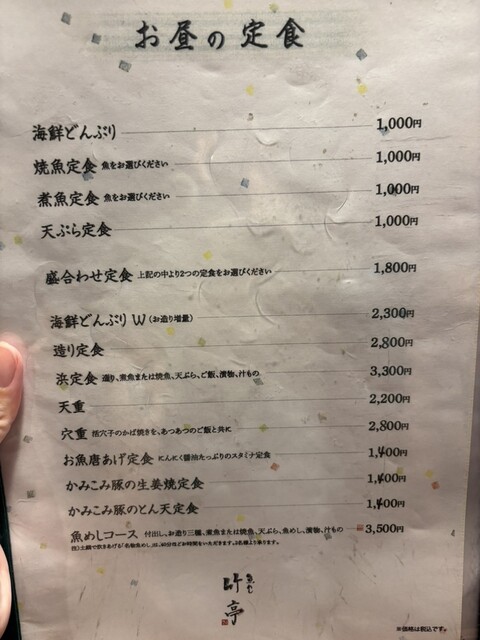 お昼の定食
海鮮どんぶり 1,000円
焼魚定食 魚をお選びください 1,000円
煮魚定食 魚をお選びください 1,000円
天ぷら定食 1,000円
盛合わせ定食 上記の中より2つの定食をお選びください 1,800円
海鮮どんぶりW(お造り増量) 2,300円
造り定食 2,800円
浜定食 造り、煮魚または焼魚、天ぷら、ご飯、漬物、汁もの 3,300円
天重 2,200円
穴重 活穴子のかば焼きを、あつあつのご飯と共に 2,800円
お魚唐あげ定食 にんにく醤油たっぷりのスタミナ定食 1,400円
かみこみ豚の生姜焼定食 1,400円
かみこみ豚のとん天定食 1,400円
魚めしコース 付出し、お造り三種、煮魚または焼魚、天ぷら、魚めし、漬物、汁もの 3,500円
注)土鍋で炊きあげる「名物魚めし」は、30分ほどお時間をいただきます。2名様より承ります。
亭
※価格は税込です。